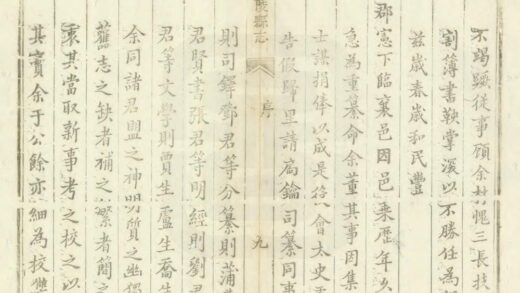 不竭蹶從事顧余才愧三長技
割簿書鞅掌深以不勝任為
茲歲春歲和民豐
郡憲下臨棄邑因邑乘歷年
急為重纂命余董其事因集
士謀捐俸以成是役會太史
告假歸里請為鑰司纂同事
陵縣志
序
九
則司鐸鄧君等分纂則蒲
君賢書張君等明經則劉
君等文學則賈生盧生喬
余同諸君盟之神明質之幽獨
舊志之缺者補之繁者簡之
衷其當取新事考之校之以
其實余于公餘亦細為校讎